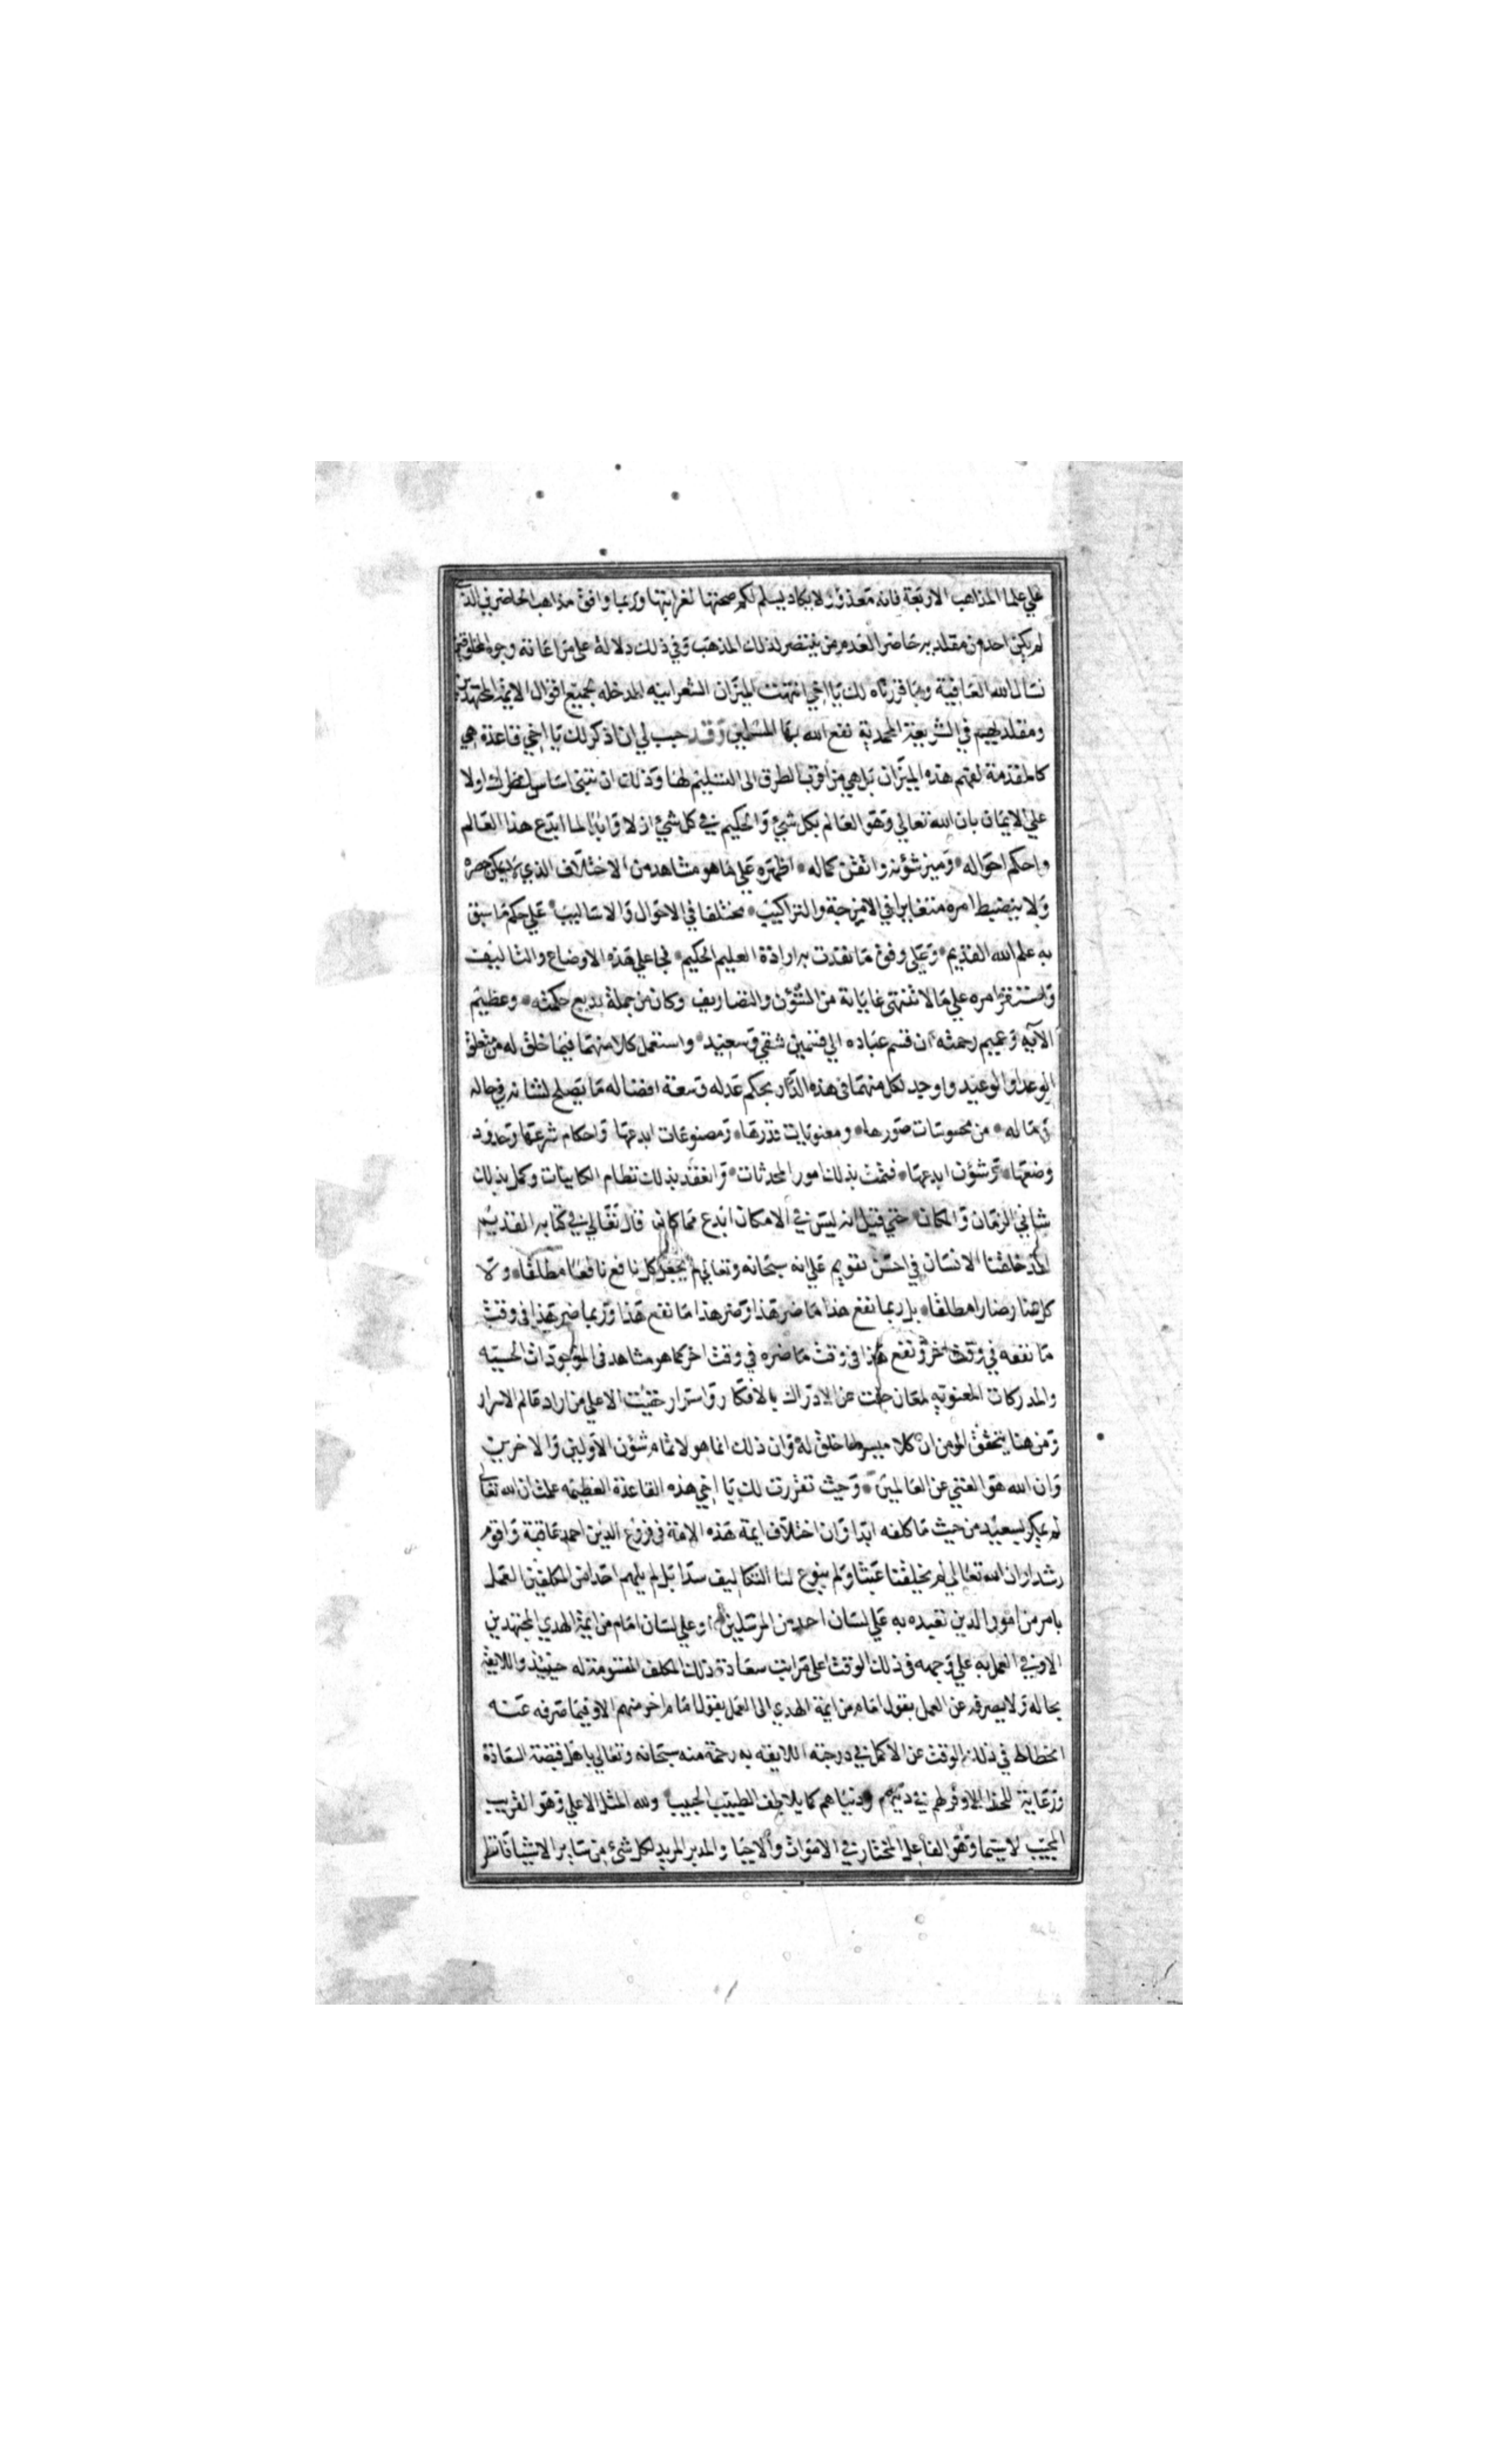 علي علما المذاهب الاربعة فانه متعذر ولا يكاد يسلم لكم صحتها لغرابتها وربما وافق مذاهب الحاضرين الذي
لم يكن احد من مقلديه حاضرا لعدم من ينتصر لذلك المذهب وفي ذلك دلالة على مراعاته وجوه المخلوقين
نسال الله العافية وبما قررناه لك يا اخي انتهت الميزان الشعرانيه المدخله لجميع اقوال الايمة المجتهدين
ومقلديهم في الشريعة المحمدية نفع الله بها المسلمين وقد حبب لي ان اذكر لك يا اخي قاعدة هي
كالمقدمة لفهم هذه الميزان بل هي من اقرب الطرق الى التسليم لها وذلك ان تبني اساس نظرك اولا
علي الايمان بان الله تعالي وهو العالم بكل شيء والحكيم في كل شيء ازلا وابدا لما ابدع هذا العالم
واحكم احواله وميز شؤنه واتقن كماله اظهره علي ما هو مشاهد من الاختلاف الذي لا يمكن حصره
ولا ينضبط امره متغايرا في الامزجة والتراكيب مختلفا في الاحوال والاساليب علي حكم ما سبق
به علم الله القديم وعلى وفق ما نفذت به ارادة العليم الحكيم فجا علي هذه الاوضاع والتاليف
واستقر امره علي ما لا تنتهي غاياته من الشؤن والتصاريف وكان من جملة بديع حكمته وعظيم
الآيه وعميم رحمته ان قسم عباده الي قسمين شقي وسعيد واستعمل كلا منهما فيما خلق له من متعلق
الوعد او الوعيد واوجد لكل منهما في هذه الدار بحكم عدله وسعة افضاله ما يصلح لشانه في حاله
وماله من محسوسات صورها ومعنويات قدرها ومصنوعات ابدعها واحكام شرعها وحدود
وضعها وشؤن ابدعها فتمت بذلك امور المحدثات وانعقد بذلك نظام الكاينات وكمل بذلك
شاني الزمان والمكان حتي قيل انه ليس في الامكان ابدع مما كان قال تعالي في كتابه القديم
لقد خلقنا الانسان في احسن تقويم علي انه سبحانه وتعالي لم يجعل كل نافع نافعا مطلقا ولا
كل ضار ضارا مطلقا بل ربما نفع هذا ما ضر هذا وضر هذا ما نفع هذا وربما ضر هذا في وقت
ما نفعه في وقت اخر ونفع هذا في وقت ما ضره في وقت اخر كما هو مشاهد في الموجودات الحسيه
والمدركات المعنويه لمعان جلت عن الادراك بالافكار واسرار خفيت الا علي من اراد عالم الاسرار
ومن هنا يتحقق المومن ان كلا ميسر لما خلق له وان ذلك انما هو لاتمام شؤن الاولين والاخرين
وان الله هو الغني عن العالمين وحيث تقررت لك يا اخي هذه القاعدة العظيمه علمت ان الله تعالى
لم يمكر بسعيد من حيث ما كلفه ابدا وان اختلاف ايمة هذه الامة في فروع الدين احمد عاقبة واقوم
رشدا وان الله تعالي لم يخلقنا عبثا ولم ينوع لنا التكاليف سدا بل لم يلهم احدا من المكلفين العمل
بامر من امور الدين تعبده به علي لسان احد من المرسلين او علي لسان امام من ايمة الهدي المجتهدين
الا وفي العمل به علي وجهه في ذلك الوقت اعلى مراتب سعادة ذلك المكلف المقسومة له حينيذ واللايقة
بحاله ولا يصرفه عن العمل بقول امام من ايمة الهدي الى العمل بقول امام اخر منهم الا وفيما صرفه عنه
انحطاط في ذلك الوقت عن الاكمل في درجته اللايقه به رحمة منه سبحانه وتعالي باهل قبضة السعادة
ورعاية للحظ الاوفر لهم في دينهم ودنياهم كما يلاطف الطبيب الحبيب ولله المثل الاعلي وهو القريب
المجيب لا سيما وهو الفاعل المختار في الاموات والاحيا والمدبر المريد لكل شئ من ساير الاشيا فانظر